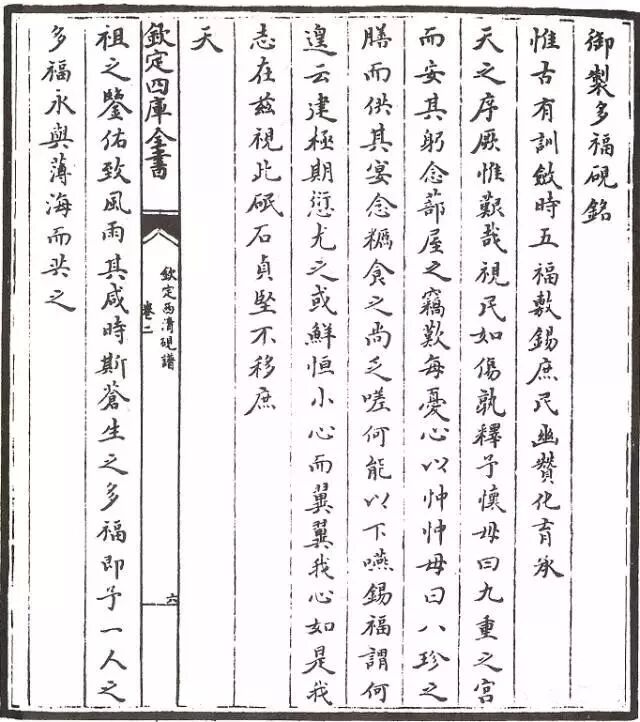 御製多福硯銘
惟古有訓斂時五福敷錫庶民幽贊化育承
天之序厥惟艱哉視民如傷孰釋予懷毋曰九重之宮
而安其躬念蔀屋之竊歎每憂心以忡忡毋曰八珍之
膳而供其宴念糲食之尚乏嗟何能以下嚥錫福謂何
遑云建極期愆尤之或鮮恒小心而翼翼我心如是我
志在茲視此砥石貞堅不移庶
天
欽定四庫全書
欽定西清硯譜
卷二
六
祖之鑒佑致風雨其咸時斯蒼生之多福即予一人之
多福永與薄海而共之